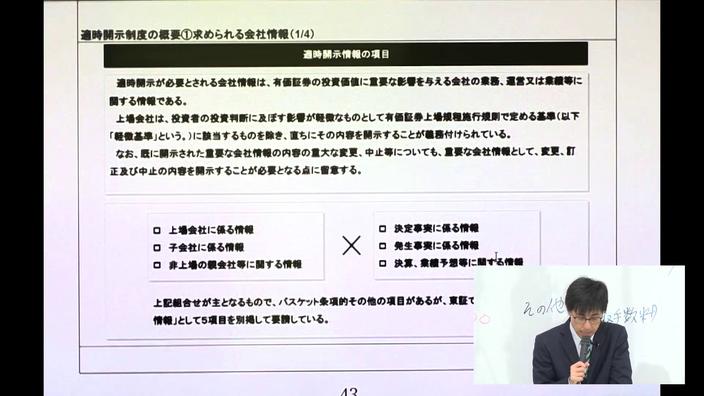 適時開示制度の概要①求められる会社情報(1/4)
適時開示情報の項目
適時開示が必要とされる会社情報は、有価証券の投資価値に重要な影響を与える会社の業務、運営又は業績等に
関する情報である。
上場会社は、投資者の投資判断に及ぼす影響が軽微なものとして有価証券上場規程施行規則で定める基準(以下
「軽微基準」という。)に該当するものを除き、直ちにその内容を開示することが義務付けられている。
なお、既に開示された重要な会社情報の内容の重大な変更、中止等についても、重要な会社情報として、変更、訂
正及び中止の内容を開示することが必要となる点に留意する。
□ 上場会社に係る情報
□ 子会社に係る情報
□ 非上場の親会社等に関する情報
×
□ 決定事実に係る情報
□ 発生事実に係る情報
□ 決算、業績予想等に関する情報
上記組合せが主となるもので、バスケット条項的その他の項目があるが、東証で
情報」として5項目を別掲して要請している。
その他
手数料
43